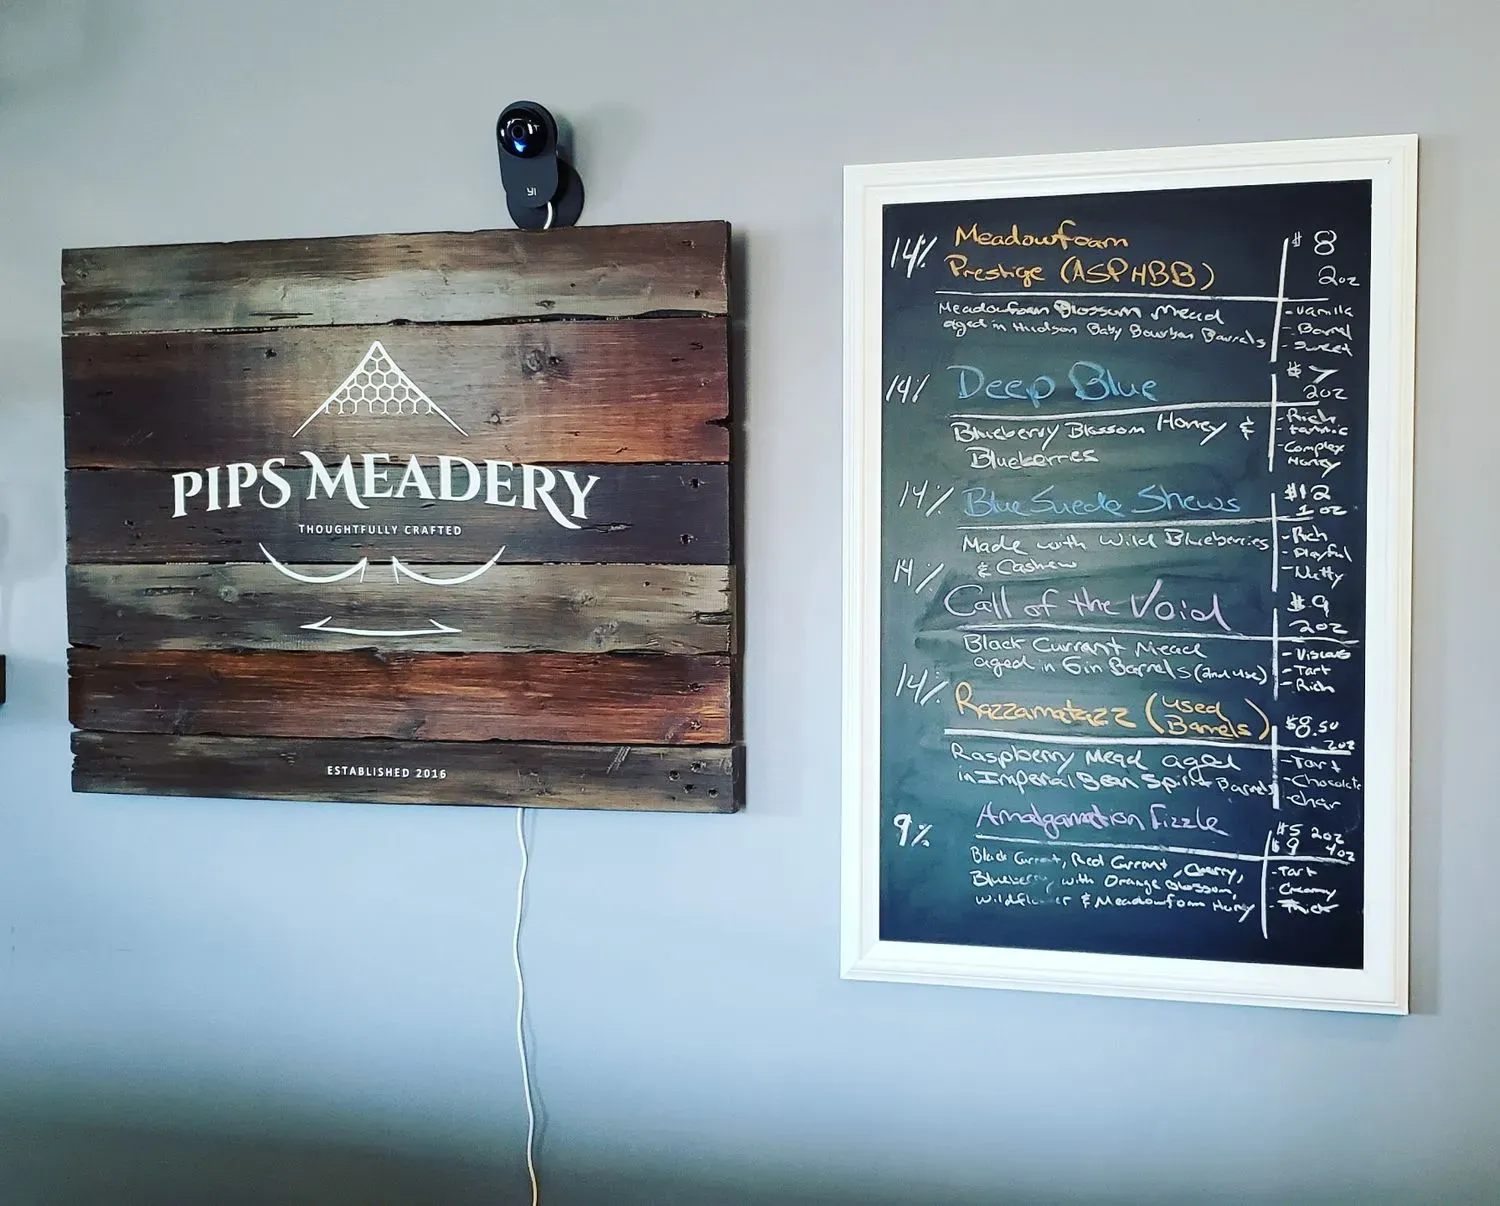 YI
PIPS MEADERY
THOUGHTFULLY CRAFTED
ESTABLISHED 2016
14% Meadowfoam
Prestige (ASPHBB)
$8
2oz
Meadowfoam Blossom Mead
aged in Hudson Baby Bourbon Barrels
- Vanilla
- Barrel
- Sweet
14% Deep Blue
$7
2oz
Blueberry Blossom Honey &
Blueberries
- Rich
- tannic
- Complex
Honey
14% Blue Suede Shews
$12
1 oz
Made with Wild Blueberries
& Cashew
- Rich
- Playful
- Nutty
14%
Call of the Void
$9
2oz
Black Currant Mead
aged in Gin Barrels (2nd use)
- Viscous
- Tart
- Rich
14% Razzamatazz (used
Barrels)
$8.50
2oz
Raspberry Mead aged
in Imperial Bean Spirit Barrels
- Tart
- Chocolate
- char
9% Amalgamation Fizzle
$5 2oz
$9 4oz
Black Currant, Red Currant, Cherry,
Blueberry with Orange Blossom,
Wildflower & Meadowfoam Honey
- Tart
- Creamy
- Thick